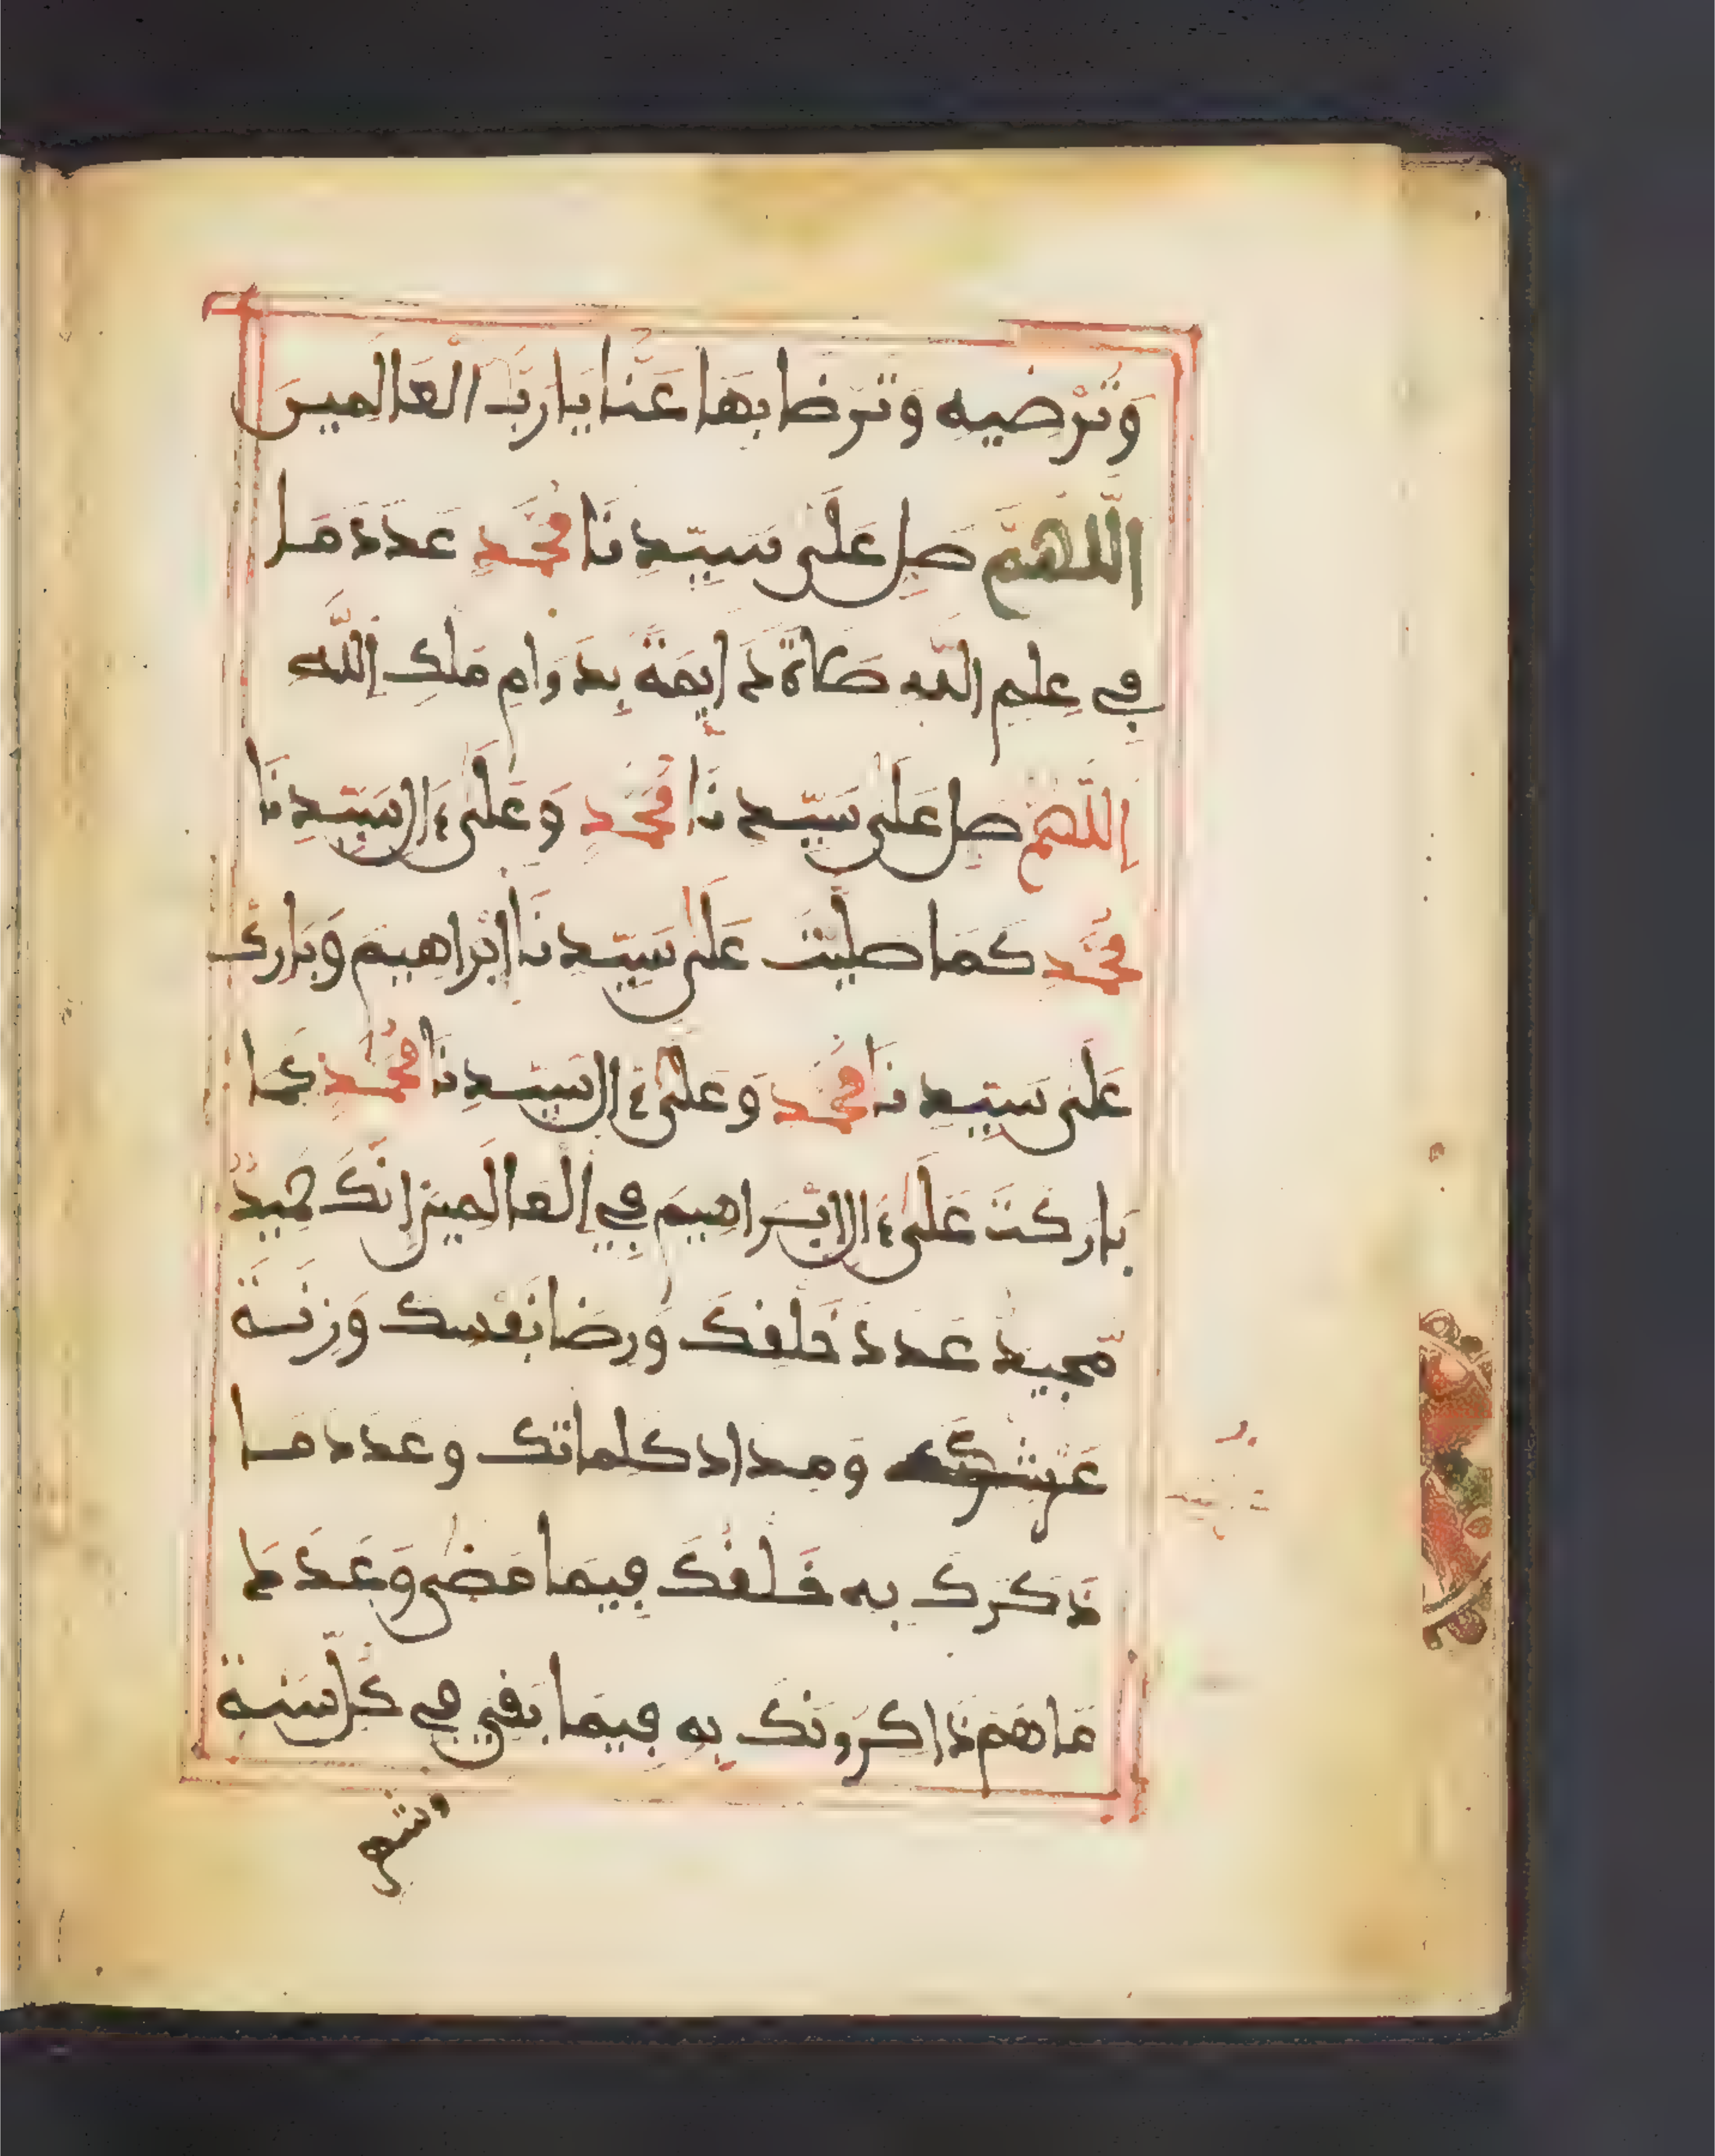 وترضيه وترضا بها عنا يا رب العالمين
اللهم صل على سيدنا محمد عدد ما
في علم الله صلاة دايمة بدوام ملك الله
اللهم صل على سيدنا محمد وعلى ءال سيدنا
محمد كما صليت على سيدنا ابراهيم وبارك
على سيدنا محمد وعلى ءال سيدنا محمد كما
باركت على ءال ابراهيم في العالمين انك حميد
مجيد عدد خلقك ورضا نفسك وزنة
عرشك ومداد كلماتك وعدد ما
ذكرك به خلقك فيما مضى وعدد
ما هم ذاكرونك به فيما بقي في كل سنة
وشهر